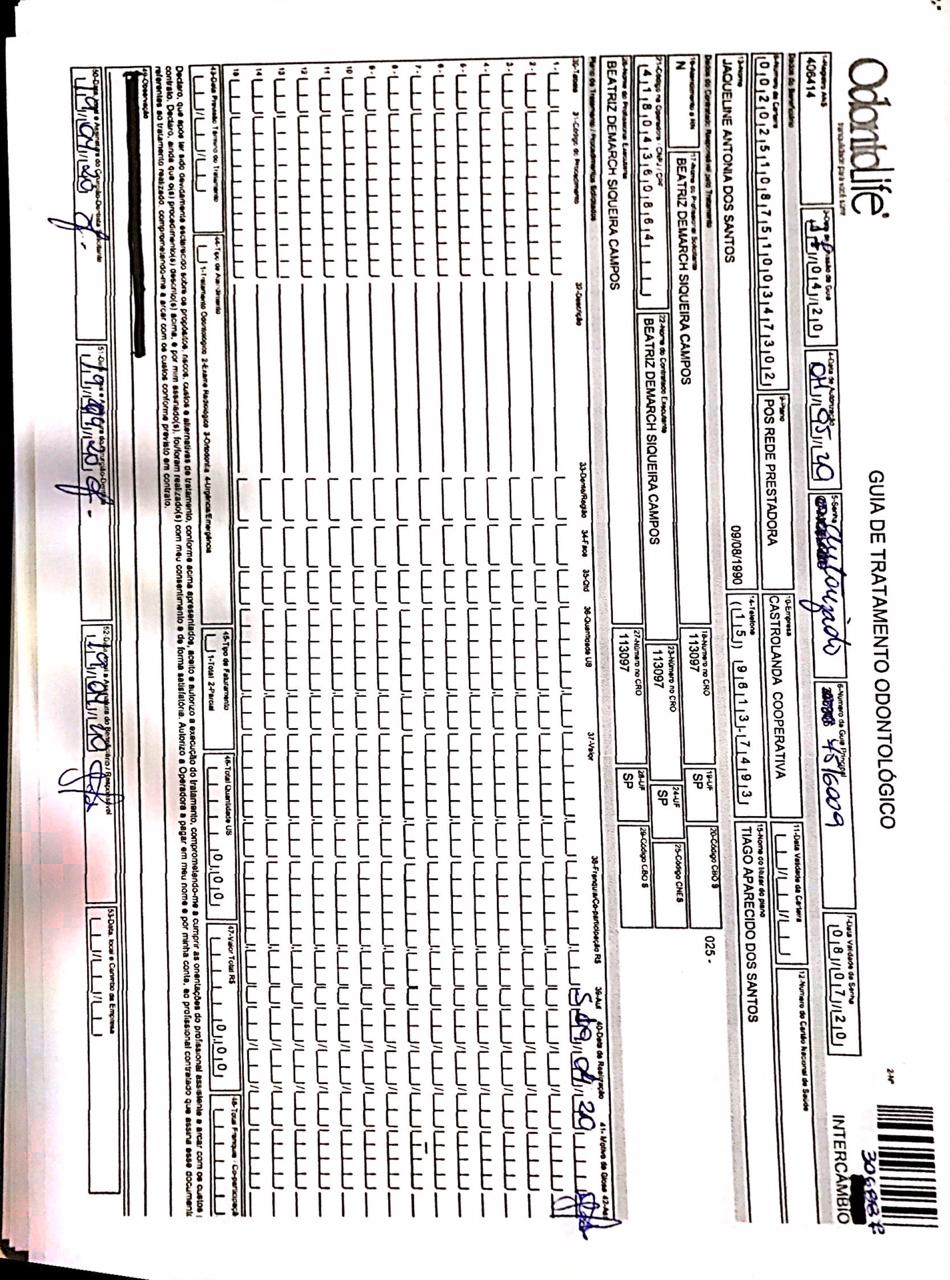 Odontolife®
tranquilidade para você sorrir
GUIA DE TRATAMENTO ODONTOLÓGICO
2-Nº
INTERCÂMBIO
1-Registro ANS
406414
04/20
5-Senha
Autorizado
6-Número da Guia Principal
4516009
7-Data Validade da Senha
08/07/20
Dados do Beneficiário
8-Número da Carteira
00202511087511003473 02
9-Plano
POS REDE PRESTADORA
10-Empresa
CASTROLANDA COOPERATIVA
11-Data Validade da Carteira
12-Número do Cartão Nacional de Saúde
13-Nome
JAQUELINE ANTONIA DOS SANTOS
09/08/1990
14-Telefone
(15) 99613-7493
15-Nome do titular do plano
TIAGO APARECIDO DOS SANTOS
Dados do Contratado Responsável pelo Tratamento
16-Atendimento a RN
N
17-Nome do Profissional Solicitante
BEATRIZ DEMARCH SIQUEIRA CAMPOS
18-Número no CRO
113097
19-UF
SP
20-Código CBO S
025 -
21-Código na Operadora / CNPJ / CPF
41804360864
22-Nome do Contratado Executante
BEATRIZ DEMARCH SIQUEIRA CAMPOS
23-Número no CRO
113097
24-UF
SP
25-Código CNES
26-Nome do Profissional Executante
BEATRIZ DEMARCH SIQUEIRA CAMPOS
27-Número no CRO
113097
28-UF
SP
29-Código CBO S
Plano de Tratamento / Procedimentos Solicitados
30-Tabela 31-Código do Procedimento 32-Descrição 33-Dente/Região 34-Face 35-Qtd 36-Quantidade US 37-Valor 38-Franquia/Co-participação R$ 39-Aut 40-Data de Realização 41-Motivo da Glosa 42-Ass
1- S 19 04 20
2-
3-
4-
5-
6-
7-
8-
9-
10
11
12
13
14
15
43-Data Previsão Término do Tratamento
44-Tipo de Atendimento
1-Tratamento Odontológico 2-Exame Radiológico 3-Ortodontia 4-Urgência/Emergência
45-Tipo de Faturamento
1-Total 2-Parcial
46-Total Quantidade US
0,00
47-Valor Total R$
0,00
48-Total Franquia / Co-participação
Declaro, que após ter sido devidamente esclarecido sobre os propósitos, riscos, custos e alternativas de tratamento, conforme acima apresentados, aceito e autorizo a execução do tratamento, comprometendo-me a cumprir as orientações do profissional assistente e arcar com os custos
contrato. Declaro, ainda que o(s) procedimento(s) descrito(s) acima, e por mim assinado(s), foi/foram realizado(s) com meu consentimento e de forma satisfatória. Autorizo a Operadora a pagar em meu nome e por minha conta, ao profissional contratado que assina esse document
referentes ao tratamento realizado comprometendo-me a arcar com os custos conforme previsto em contrato.
49-Observação
50-Data e Assinatura do Cirurgião-Dentista Solicitante
19 04 20
53-Data, local e Carimbo da Empresa